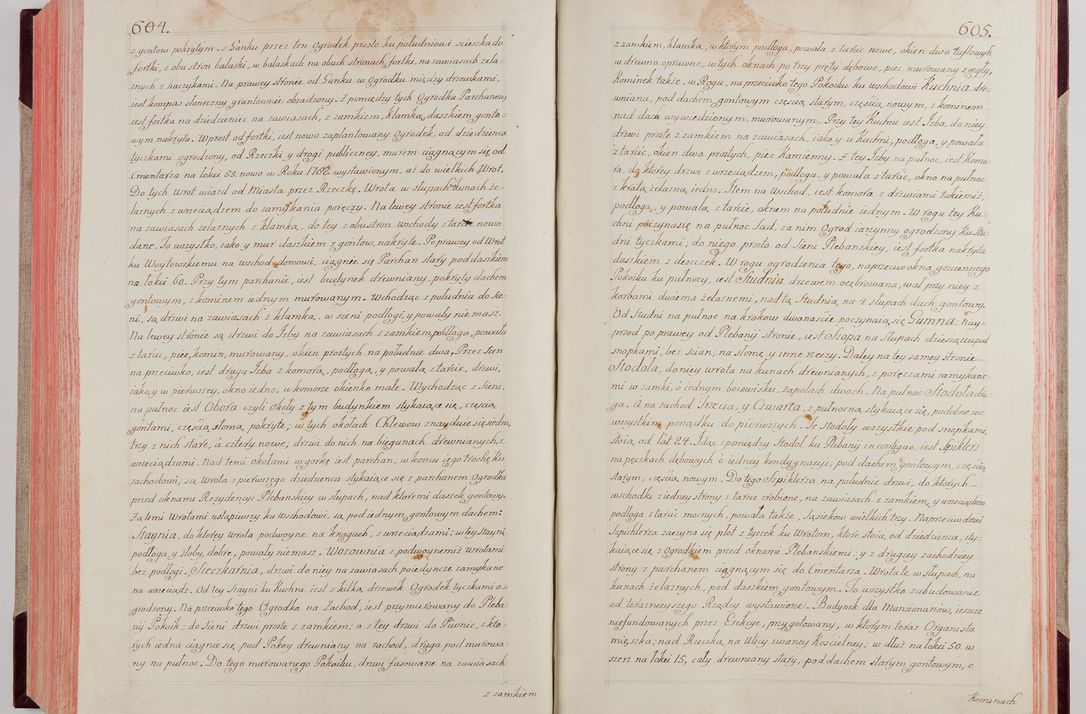 604.
z gontow pokrytym. z Ganku przez ten Ogrodek prosto ku południowi scieszka do
fortki, z obu stron balaski, w balaskach na obuch stronach fortki, na zawiasach żela-
znych z haczykami. Na prawey stronie od Ganku w Ogrodku między drzewkami,
iest kompas słoneczny gruntownie obsadzony. Z pomiędzy tych Ogrodka Parchanow
iest fortka na dziedziniec na zawiasach, z zamkiem, klamką, daszkiem gonto-
wym nakryta. Wprost od fortki, iest nowo zaplantowany Ogrodek, od dziedzinca
tyczkami ogrodzony, od Rzeczki y drogi publiczney, murem ciągnącym się od
Cmentarza na łokci 55. nowo w Roku 1782 wystawionym, aż do wielkich Wrot.
Do tych Wrot wiazd od Miasta przez Rzeczkę. Wrota w słupach kunach że-
laznych z wrzeciądzem do zamykania poręczy. Na lewey stronie iest fortka
na zawiasach żelaznych z klamką, do tey z obu stron wschody z tarcic nowo
dane. To wszystko, iako y mur daszkiem z gontow, nakryte. Po prawey od Wrot
ku Woytowskiemu na wschod domowi, ciągnie się Parchan stary pod daszkiem
na łokci 60. Przy tym parchanie, iest budynek drewniany, pokryty dachem
gontowym, z kominem iednym murowanym. Wchodząc z południa do sie-
ni, są drzwi na zawiasach z klamką, w sieni podłogi y powały nie masz.
Na lewey stronie są drzwi do Izby na zawiasach z zamkiem, podłoga, powała
z tarcic, piec, komin, murowany, okien prostych na południe dwa. Przez Sien
na przeciwko, iest druga Izba z komorą, podłogą, y powałą, z tarcic, drzwi,
iako y w pierwszey, okno iedno, w komorze okienko małe. Wychodząc z Sieni
na pułnoc iest Obora czyli Okoły z tym budynkiem stykaiące się, częścią
gontami, częścią słomą, pokryte; w tych okołach Chlewow znayduie się siedm,
trzy z nich stare, a cztery nowe; drzwi do nich na biegunach drewnianych, z
wrzeciądzami. Nad temi Okołami w gorkę iest parchan, w koncu iego trochę ku
zachodowi, są Wrota z pierwszego dziedzinca stykaiące się z parchanem Ogrodka
przed oknami Rezydencyi Plebanskiey w słupach, nad ktoremi daszek gontowy.
Za temi Wrotami wstąpiwszy ku Wschodowi, są pod iednym gontowym dachem:
Staynia, do ktorey wrota podwoyne na biegunach, z wrzeciądzami; w tey Stayni
podłoga, y żłoby, dobre, powały nie masz. Wozownia z podwoynemi Wrotami
bez podłogi. Sieczkarnia, drzwi do niey na zawiasach poiedyncze zamykane
na wrzeciądz. Od tey Stayni ku Kuchni iest z kilką drzewek Ogrodek tyczkami o-
grodzony. Na przeciwko tego Ogrodka na Zachod, iest przymurowany do Pleba-
nij Pokoik; do Sieni drzwi proste z zamkiem; a z tey drzwi do Piwnic, z kto-
rych iedna ciągnie się, pod Pokoy drewniany na zachod, druga pod murowa-
ny na pułnoc. Do tego murowanego Pokoiku, drzwi fasowane na zawiasach
z zamkiem
605.
z zamkiem, klamką, w ktorym podłoga, powała z tarcic nowe, okien dwa taflowych
w drewno oprawne, w tych oknach po trzy pręty dębowe, piec murowany z cegły,
Kominek także. w Rogu, na przeciwko tego Pokoiku ku wschodowi Kuchnia dre-
wniana, pod dachem gontowym częścią starym, częścią nowym, z kominem
nad dach wywiedzionym murowanym. Przy tey Kuchni iest Izba, do niey
drzwi proste z zamkiem na zawiasach, iako y u Kuchni, podłoga, y powała
z tarcic, okien dwa prostych, piec Kamienny. Z tey Izby na pułnoc, iest Komo-
ra, do ktorey drzwi z wrzeciądzem, podłoga y powała z tarcic, okno na pułnoc
z kratą żelazną, iedno. Item na Wschod, iest komora z drzwiami takiemiż,
podłogą y powałą, z tarcic, oknem na południe iednym. W rogu tey Ku-
chni poczyna się na pułnoc Sad, za nim Ogrod iarzynny ogrodzony ku Stu-
dni tyczkami, do niego prosto od Sieni Plebanskiey, iest fortka nakryta
daszkiem z deszczek. W rogu ogrodzenia tego, naprzeciw okna goscinnego
Pokoiku ku pułnocy, iest Studnia drzewem ocębrowana, wał przy niey z
korbami dwiema żelaznemi, nad tą Studnią na 4. słupach dach gontowy.
Od Studni na pułnoc na krokow dwanascie poczynaią się Gumna: nay-
przod po prawey od Plebanij stronie, iest Szopa na słupach dziesiąciu pod
snopkami, bez scian, na słomę y inne rzeczy. Daley na tey samey stronie
Stodoła, do niey wrota na kunach drewnianych, z poręczami zamykane-
mi w zamki, o iednym boiowisku, zapolach dwoch. Na pułnoc Stodoła dru-
ga. A na zachod Trzecia, y Czwarta, z pułnocną stykaiące się, podobne we
wszystkim porządku do pierwszych. Te Stodoły wszystkie pod snopkami,
stoią, od lat 24. Idąc z pomiędzy Stodoł ku Plebanij in contiguo, iest Spiklerz
na pęczkach dębowych o iedney kondygnacyi, pod dachem gontowym, częścią
starym, częścią nowym. Do tego Spiklerza na południe drzwi, do ktorych
wschodki z iedney strony z tarcic zrobione, na zawiasach z zamkiem, y wrzeciądzem
podłoga z tarcic mocnych, powała także, sąsiekow wielkich trzy. Naprzeciw drzwi
Spichlerza zaczyna się płot z tyczek ku Wrotom, ktore stoią, od dziedzinca, sty-
kaiące się z Ogrodkiem przed oknami Plebanskiemi y z drugiey zachodniey
strony z parchanem ciągnącym się do Cmentarza. Wrota te w słupach, na
kunach żelaznych, pod daszkiem gontowym. To wszystko zabudowanie
od teraznieyszego Rządcy wystawione. Budynek dla Mansionarzow, ieszcze
nieufundowanych przez Erekcye, przygotowany, w ktorym teraz Organista
mieszka; nad Rzeczką na Ulicy zwaney Koscielney; w dłuż na łokci 50. w
szerz na łokci 15, cały drewniany stary, pod dachem starym gontowym, o
Kominach